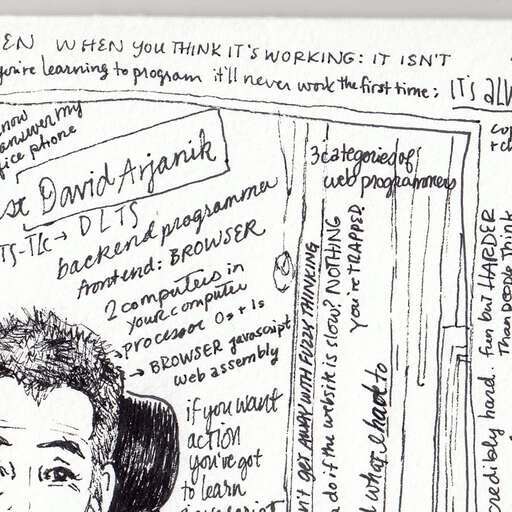 EN WHEN YOU THINK IT'S WORKING: IT ISN'T
you're learning to program it'll never work the first time: IT'S
now
answer my
fice phone
David Arjanik
TS-TLC → DLTS
backend programmer
frontend: BROWSER
2 computers in
your computer
processor 0s + 1s
→ BROWSER javascript
web assembly
if you want
action
you've got
to learn
3 categories of
web programmers
n't GET AWAY WITH FUZZY THINKING
do if the website is slow? NOTHING
you're TRAPPED
what I had to
credibly hard. fun but HARDER
Than people Think